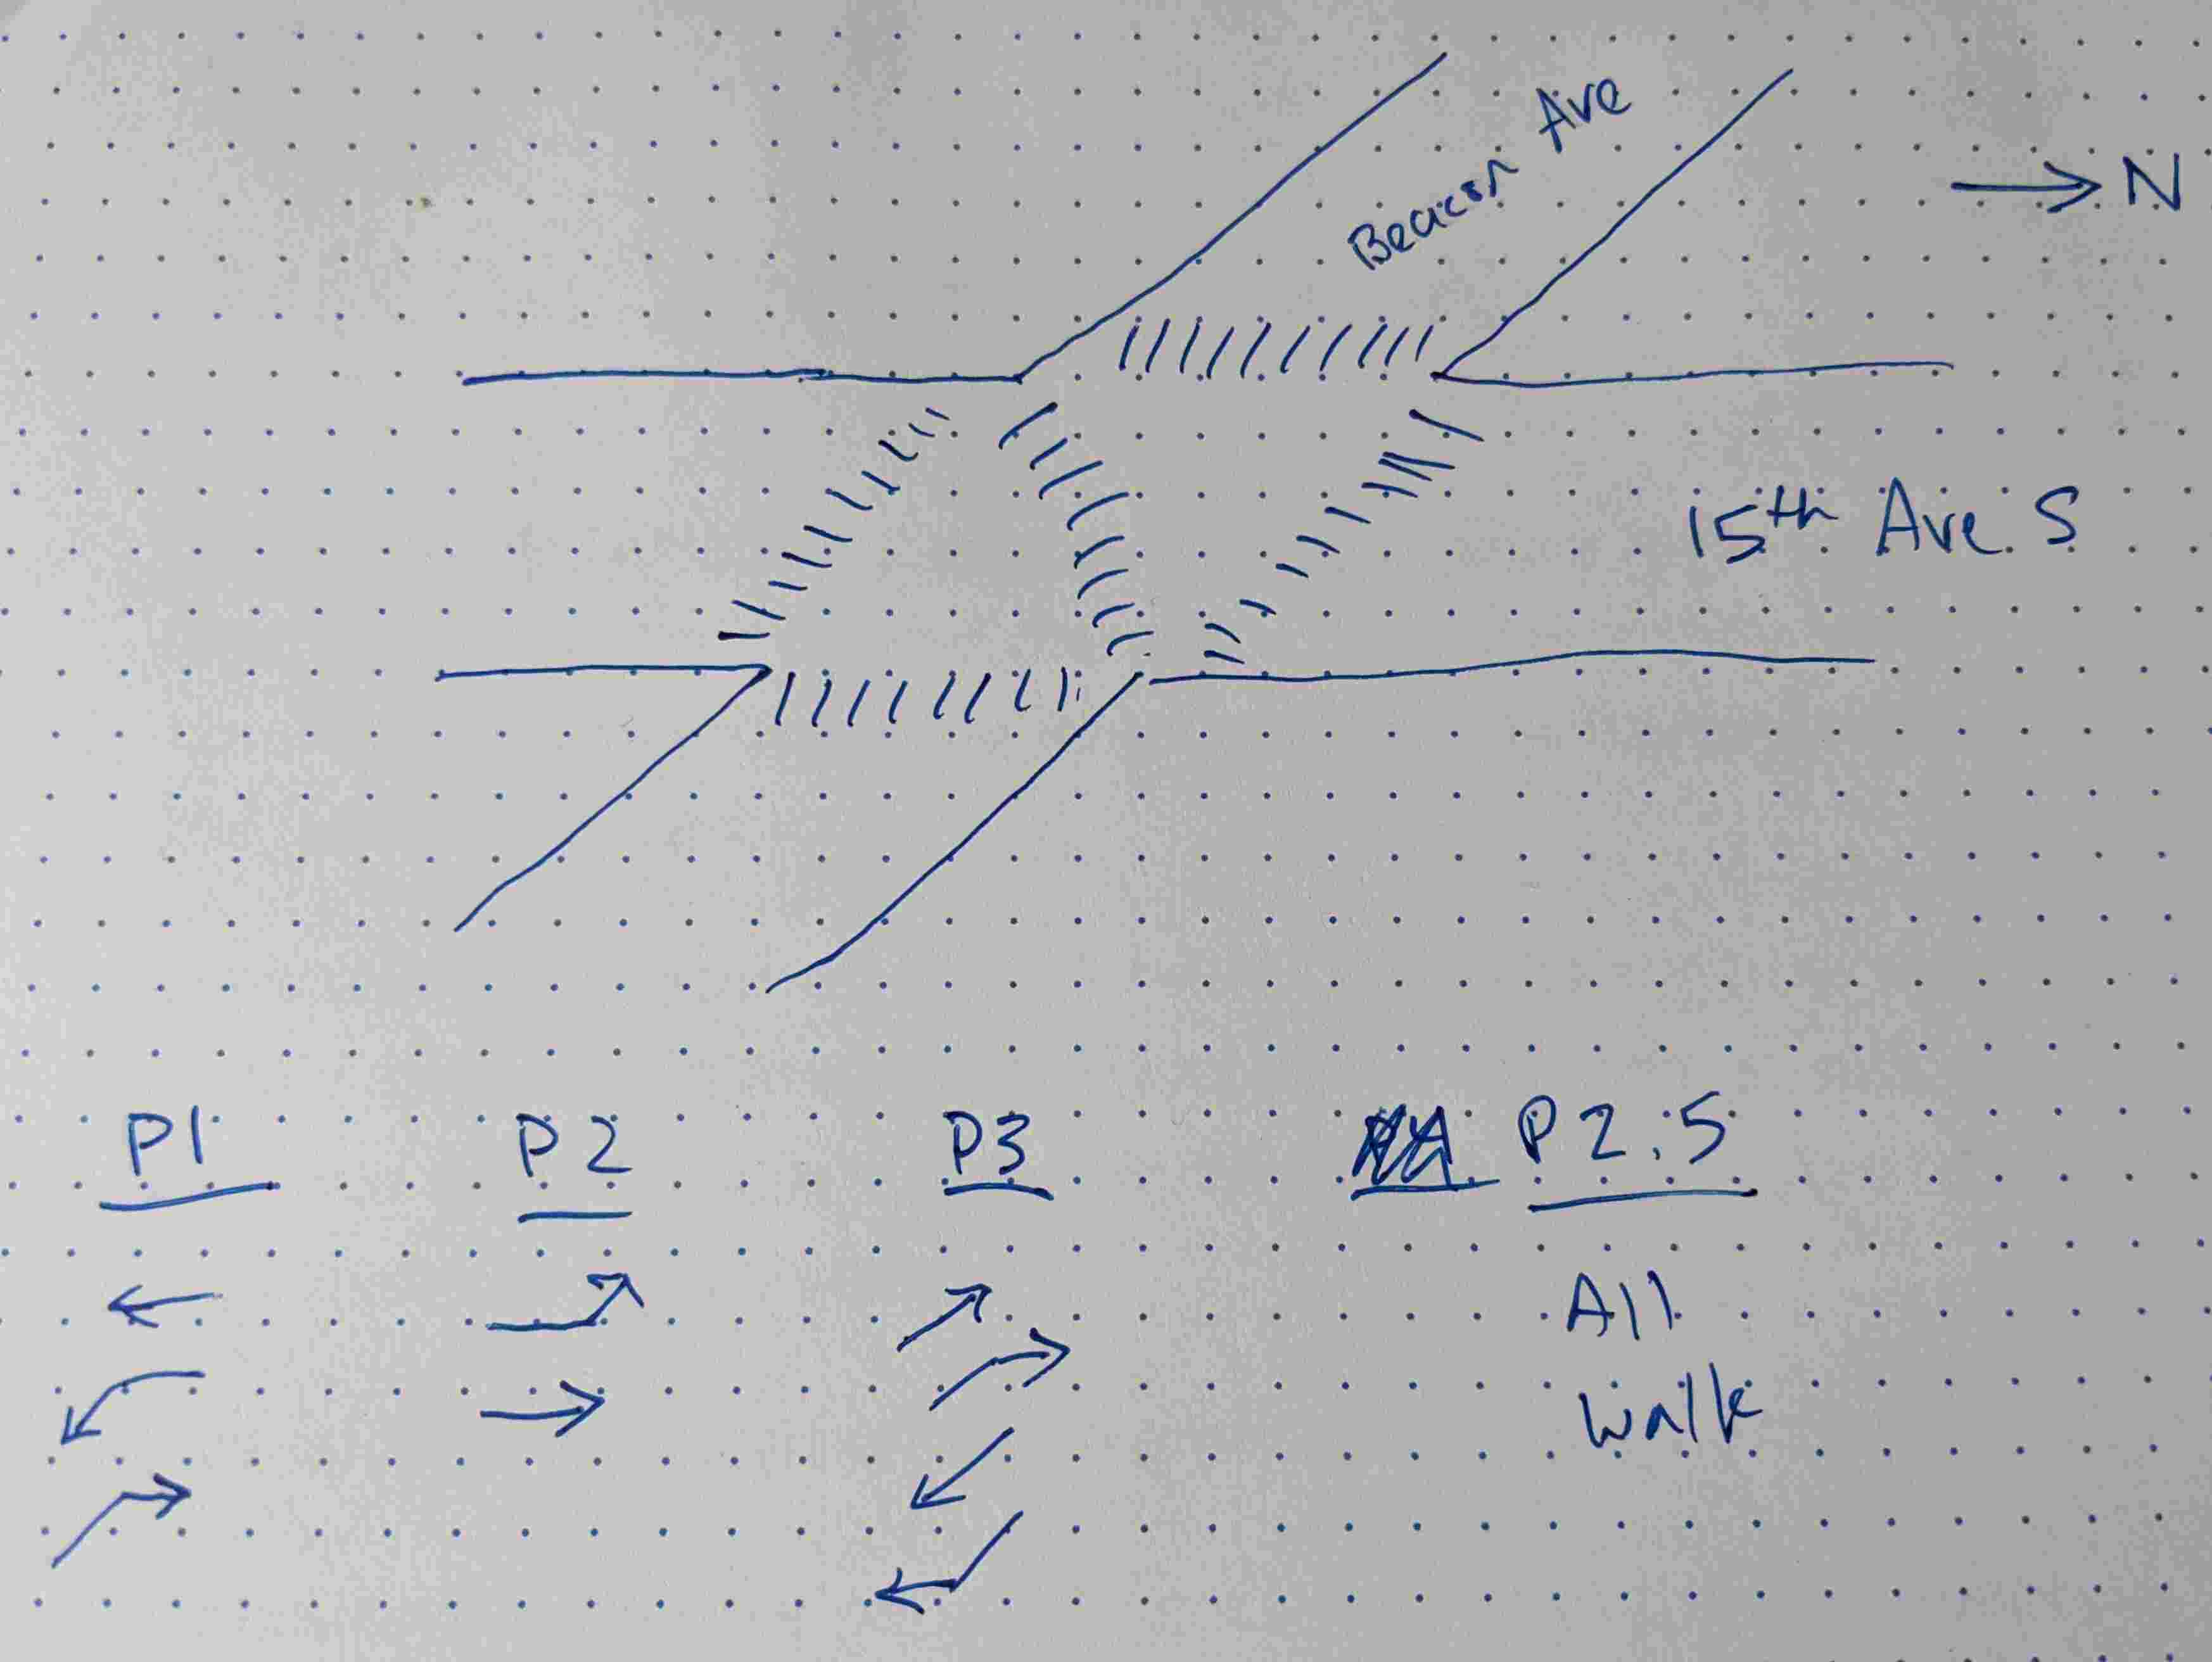 Beacon Ave
N
15th Ave S
P1
P2
P3
P2.5
All
Walk